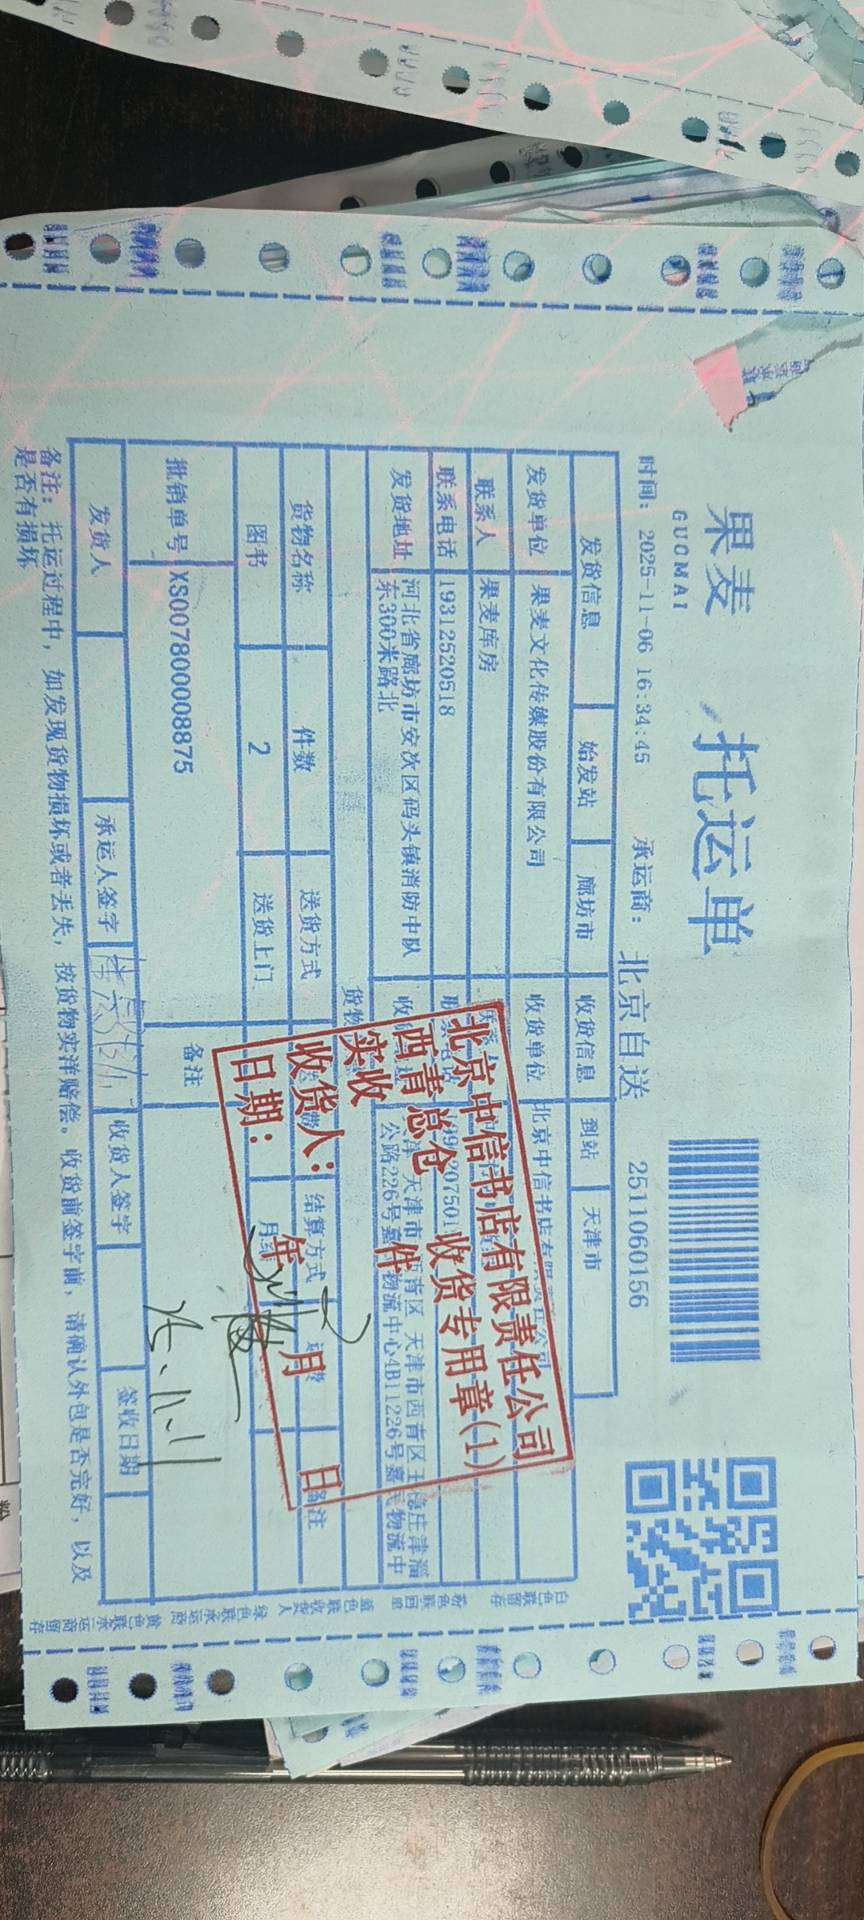 果麦 托运单
GUOMAI
时间: 2025-11-06 16:34:45 承运商: 北京自送 2511060156
发货信息 始发站 廊坊市 收货信息 到站 天津市
发货单位 果麦文化传媒股份有限公司 收货单位 北京中信书店有限责任公司
联系人 果麦库房
联系电话 19312520518
发货地址 河北省廊坊市安次区码头镇消防中队东300米路北
天津市西青区 天津市西青区王稳庄津淄公路226号嘉民物流中心4B11226号嘉民物流中
货物名称 件数 送货方式 结算方式 备注
图书 2 送货上门 月结
批销单号 XS007800008875 备注
发货人 承运人签字 收货人签字 签收日期
备注: 托运过程中, 如发现货物损坏或者丢失, 按货物实洋赔偿。收货前签字前, 请确认外包是否完好, 以及
是否有损坏
白色联留存 粉色联回单 蓝色联收货人 绿色联承运商 黄色联承运商留存
北京中信书店有限责任公司
西青总仓 收货专用章(1)
实收 件
收货人:
日期: 年 月 日